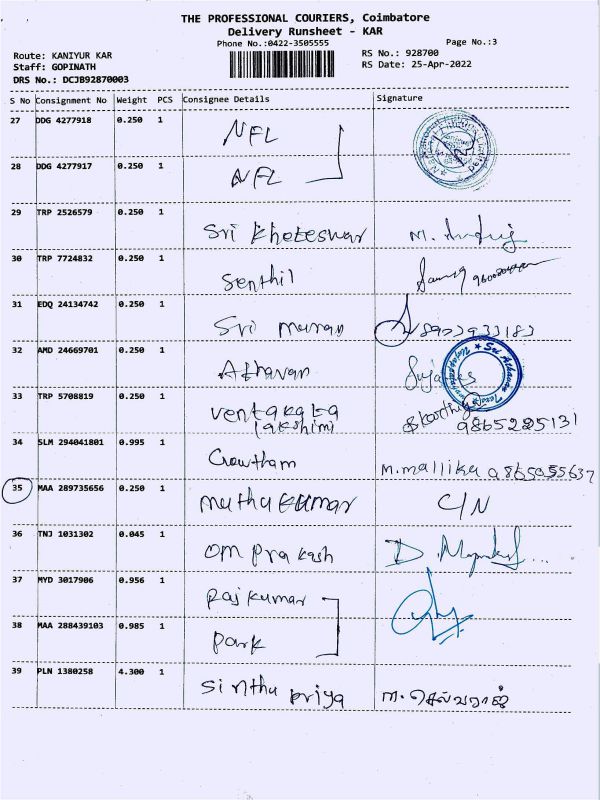 THE PROFESSIONAL COURIERS, Coimbatore
Delivery Runsheet - KAR
Phone No.:0422-3505555
Page No.:3
Route: KANIYUR KAR
RS No.: 928700
Staff: GOPINATH
RS Date: 25-Apr-2022
DRS No.: DCJB92870003
S No Consignment No Weight PCS Consignee Details Signature
27 DDG 4277918 0.250 1 NFL
28 DDG 4277917 0.250 1 NFL
29 TRP 2526579 0.250 1 Sri Kheteswar M.
30 TRP 7724832 0.250 1 Senthil
31 EDQ 24134742 0.250 1 Sri
32 AMD 24669701 0.250 1 Athavan
33 TRP 5708819 0.250 1 Ventakata
Lakshimi 9865225131
34 SLM 294041801 0.995 1 Gowtham M.mallika 9865955637
35 MAA 289735656 0.250 1 Muthukumar C/N
36 TNJ 1031302 0.045 1 Om Prakash D.
37 MYD 3017906 0.956 1 Rajkumar
38 MAA 288439103 0.985 1 Park
39 PLN 1380258 4.300 1 Sinthu Priya ா.செல்வராஜ்